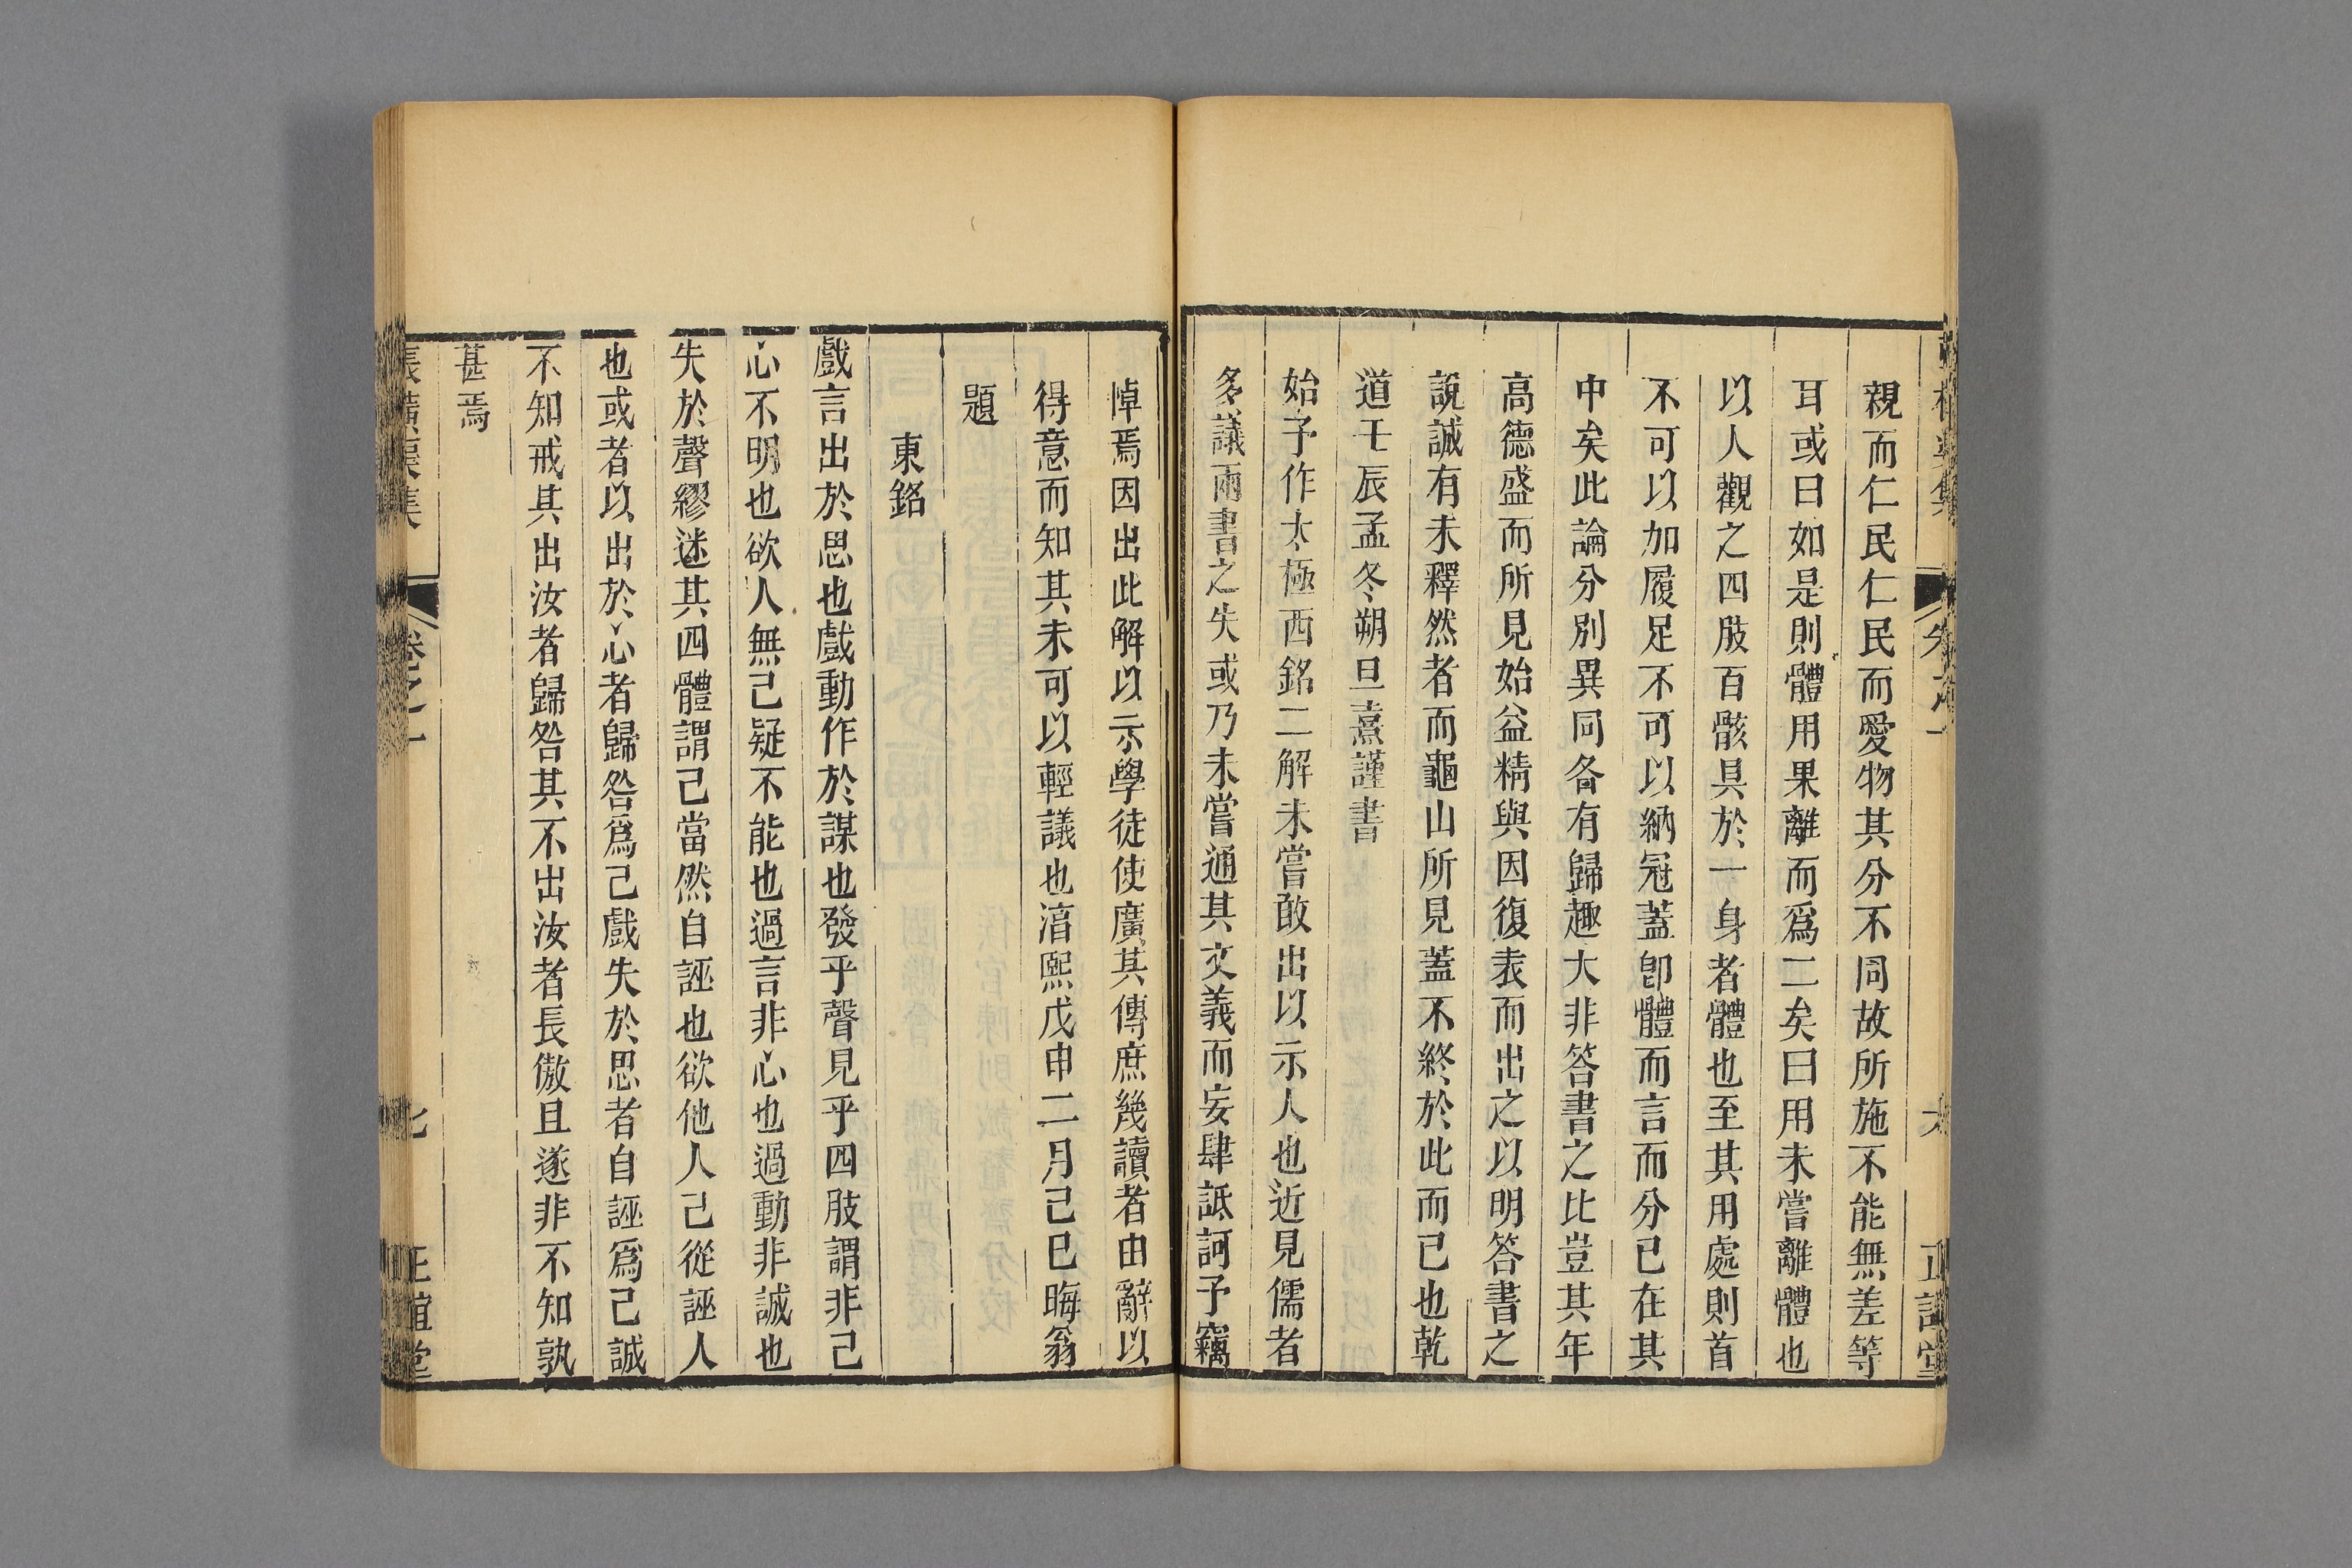 親而仁民仁民而愛物其分不同故所施不能無差等
耳或曰如是則體用果離而爲二矣曰用未嘗離體也
以人觀之四肢百骸具於一身者體也至其用處則首
不可以加履足不可以納冠蓋卽體而言而分已在其
中矣此論分別異同各有歸趣大非答書之比豈其年
高德盛而所見始益精與因復表而出之以明答書之
說誠有未釋然者而龜山所見蓋不終於此而已也乾
道壬辰孟冬朔旦熹謹書
始予作太極西銘二解未嘗敢出以示人也近見儒者
多議兩書之失或乃未嘗通其文義而妄肆詆訶予竊
悼焉因出此解以示學徒使廣其傳庶幾讀者由辭以
得意而知其未可以輕議也淳熙戊申二月己巳晦翁
題
東銘
戲言出於思也戲動作於謀也發乎聲見乎四肢謂非己
心不明也欲人無己疑不能也過言非心也過動非誠也
失於聲繆迷其四體謂己當然自誣也欲他人己從誣人
也或者以出於心者歸咎爲己戲失於思者自誣爲己誠
不知戒其出汝者歸咎其不出汝者長傲且遂非不知孰
甚焉
張橫渠集
卷之一
七
正誼堂